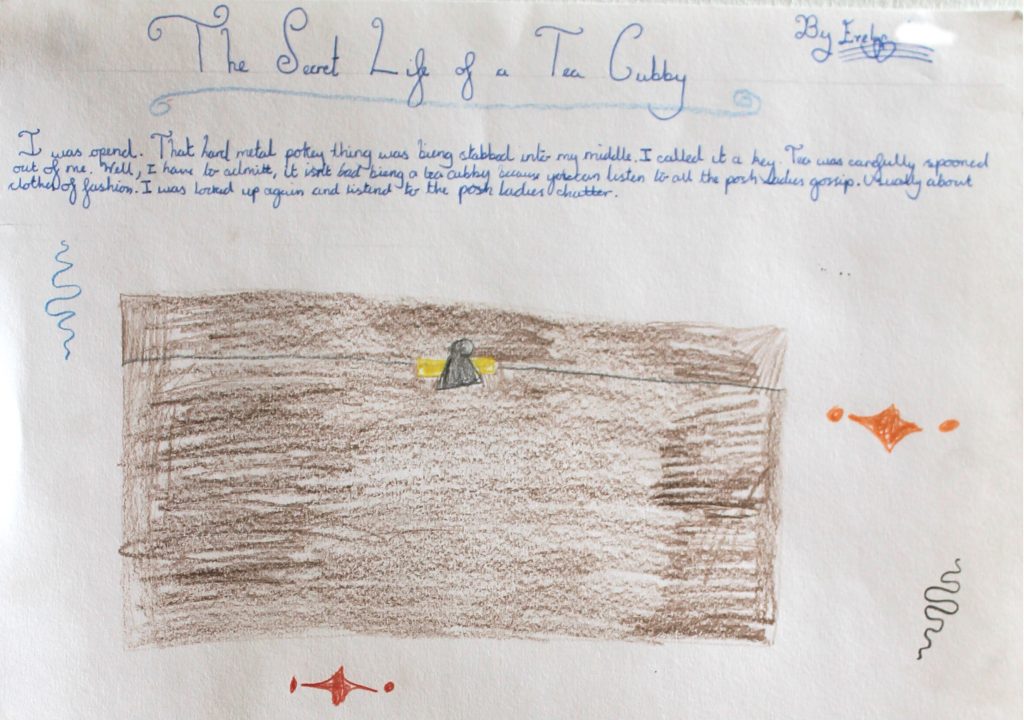 The Secret Life of a Tea Cubby
By
I was opend. That hard metal pokey thing was bieng stabbed into my middle. I called it a key. Tea was carefully spooned
out of me. Well, I have to admitt, it isn't bad bieng a tea cubby because you can listen to all the posh ladies gossip. Usually about
clothes of fashion. I was locked up again and listend to the posh ladies chatter.